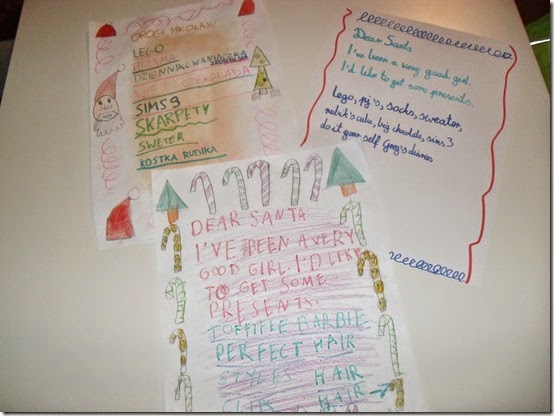 DROGI MIKOŁAJU
LEGO
PIŻAMA
DZIENNIK CWANIACZKA
CZEKOLADA
SIMS 3
SKARPETY
SWETER
KOSTKA RUBIKA
Dear Santa
I've been a very good girl.
I'd like to get some presents.
Lego, pj's, socks, sweater,
rubik's cube, big chocolate, sims 3
do it your self Greg's diaries
DEAR SANTA
I'VE BEEN A VERY
GOOD GIRL. I'D LIKE
TO GET SOME
PRESENTS.
TOFFIFEE BARBIE
PERFECT HAIR
STYLES HAIR
HAIR